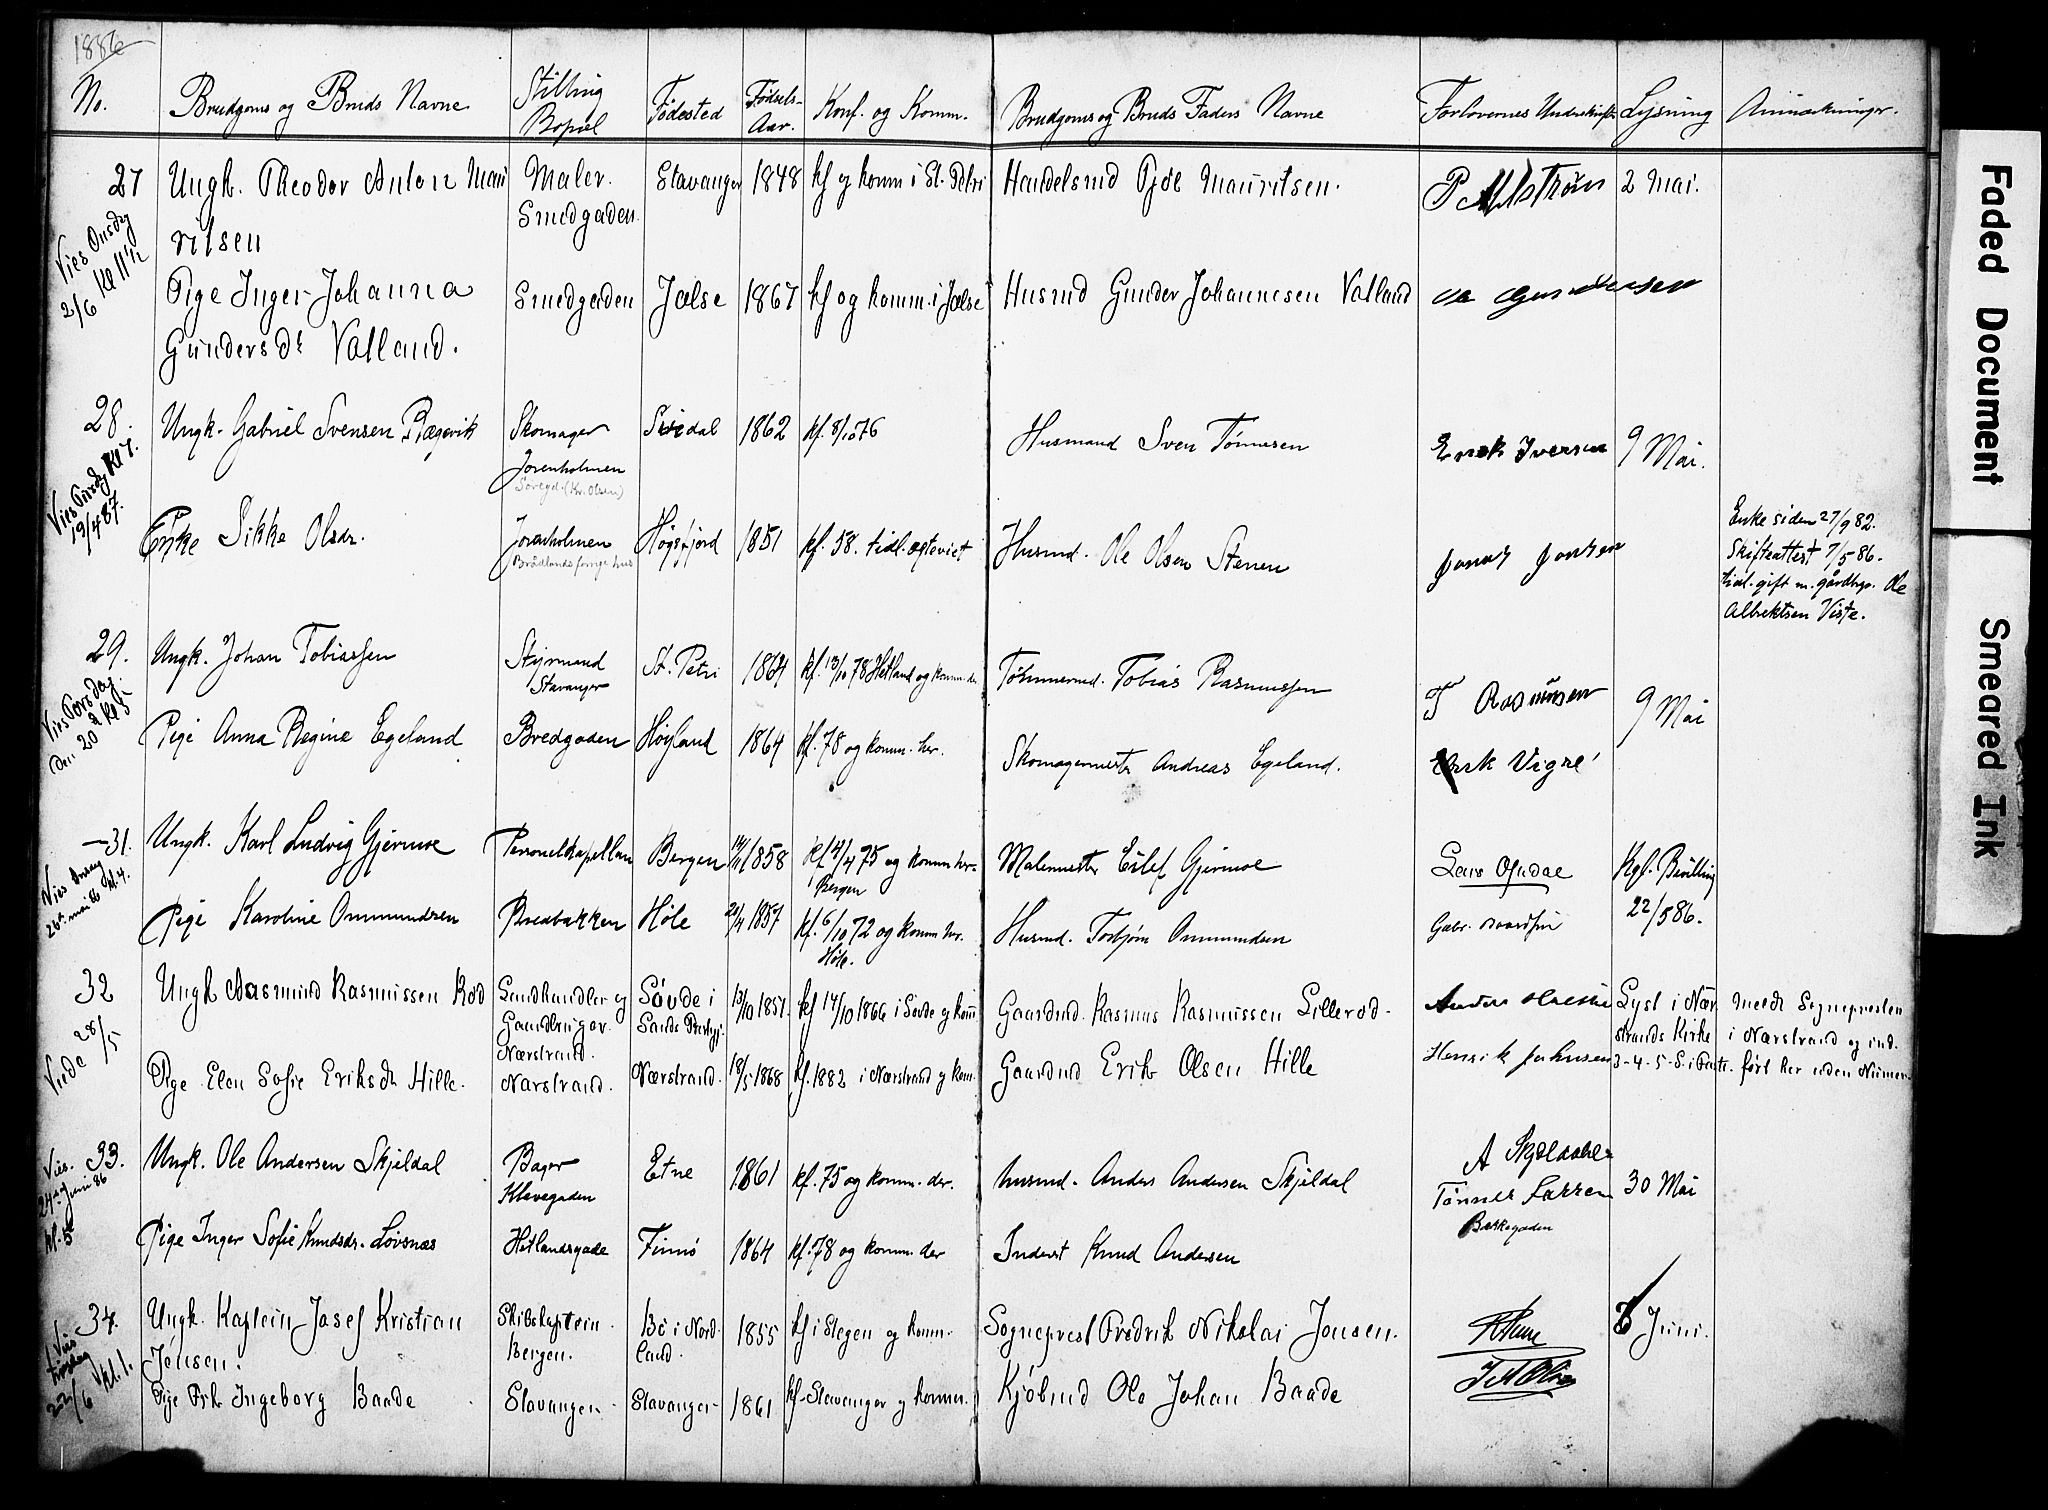 1886
No. Brudgoms og Bruds Navne Stilling Bopæl Fødested Fødsels-Aar. Konf. og Komm. Brudgoms og Bruds Faders Navne Forlovernes Underskrift Lysning Anmærkninger.
27 Ungk. Theodor Anton Mau Maler. Stavanger 1848 kf og komm i St. Petri Handelsmd Tjöl Mauritsen. 2 Mai.
ritsen Smedgaden.
Vies Onsdag 2/6 Kl 11 1/2
Pige Inger Johanna Smedgaden Jælse 1867 kf og komm. i Jælse Husmd Gunder Johannesen Valland
Gundersdr Valland.
28. Ungk. Gabriel Svensen Rægevik Skomager Sirdal 1862 kf. 8/10 76 Husmand Sven Tønnesen Erik Iversen 9 Mai.
Jorenholmen
(Kr. Olsen)
19/4 87.
Enke Sikke Olsdr. Jorenholmen Høgsfjord 1851 kf. 58. tidl. ægteviet Husmd. Ole Olsen Stenen
Enke siden 27/9 82.
Skifteattest 7/5 86.
tidl. gift m. gårdbr. Ole
Albrektsen Viste.
29. Ungk. Johan Tobiassen Styrmand St. Petri 1864 kf. 13/10 78 Hetland og komm. Tømmermd. Tobias Rasmussen T Rasmusen 9 Mai
Stavanger
Vies Torsdag den 20 kl 5
Pige Anna Regine Egeland Bredgaden Høyland 1864 kf. 78 og komm. her. Skomagermester Andreas Egeland. Erik Vigre
31. Ungk. Karl Ludvig Gjermoe Personelkapellan Bergen 1858 kf 4/4 75 og komm her Malermester Eilef Gjermoe Lars Kgl. Bevilling
Bergen 22/5 86.
Vies Onsdag 26. mai 86 kl. 4.
Pige Karoline Ommundsen Bredbakken Høle 1857 kf. 6/10 72 og komm her. Husmd. Torbjørn Ommundsen
Høle.
32 Ungk Aasmund Rasmussen Rød Landhandler og Søvde i 13/10 1857. kf 14/10 1866 i Søvde og komm Gaardmd. Rasmus Rasmussen Lillerød. Lyst i Nær Meldt Sognepresten
Gaardbruger. Sands Prestgj. strands Kirke i Nærstrand og ind-
Nærstrand.
Viede 28/5
Pige Elen Sofie Eriksdr Hille. Nærstrand. Nærstrand. 18/5 1868 kf. 1882 i Nærstrand og kom. Gaardmd Erik Olsen Hille Henrik 3-4-5-S. i Paaske. ført her uden Numer.
33. Ungk. Ole Andersen Skjeldal Bager Etne 1861 kf. 75 og komm. der. Husmd. Anders Andersen Skjeldal A 30 Mai
Klavegaden Tønnes Larsen
Bakkegaden
Vies. 24de Juni 86 kl. 5
Pige Inger Sofie Knudsdr. Løvsnæs Hetlandsgade Finnø 1864 kf. 78 og komm. der Inderst Knud Andersen
34. Ungk. Kaptein Josef Kristian Skibskaptein. Bö i Nord- 1855 kf i Stegen og komm. Sogneprest Fredrik Nikolai Jensen. 6 Juni.
Jensen. Bergen. land.
Vies Tirsdag 22/6 kl. 1.
Pige Frk Ingeborg Baade Stavanger. Stavanger 1861 kf. Stavanger og komm. Kjöbmd Ole Johan Baade
Faded Document
Smeared Ink